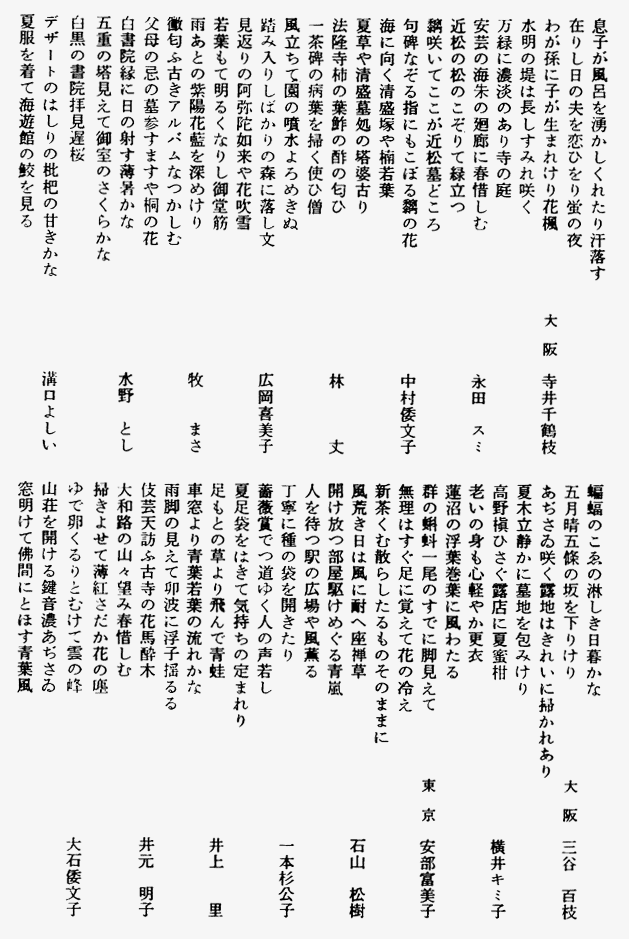 息子が風呂を湧かしくれたり汗落す
在りし日の夫を恋ひをり蛍の夜
わが孫に子が生まれけり花楓
大阪 寺井千鶴枝
水明の堤は長しすみれ咲く
万緑に濃淡のあり寺の庭
安芸の海朱の廻廊に春惜しむ
永田 スミ
近松の松のこぞりて緑立つ
藊咲いてここが近松墓どころ
句碑なぞる指にもこぼる藊の花
中村倭文子
海に向く清盛塚や楠若葉
夏草や清盛墓処の塔婆古り
法隆寺柿の葉鮓の酢の匂ひ
林 丈
一茶碑の病葉を掃く使ひ僧
風立ちて園の噴水よろめきぬ
踏み入りしばかりの森に落し文
広岡喜美子
見返りの阿弥陀如来や花吹雪
若葉もて明るくなりし御堂筋
雨あとの紫陽花藍を深めけり
牧 まさ
黴匂ふ古きアルバムなつかしむ
父母の忌の墓参すますや桐の花
白書院縁に日の射す薄暑かな
水野 とし
五重の塔見えて御室のさくらかな
白黒の書院拝見遅桜
デザートのはしりの枇杷の甘きかな
溝口よしい
夏服を着て海遊館の鮫を見る
蝙蝠のこゑの淋しき日暮かな
五月晴五條の坂を下りけり
大阪 三谷 百枝
あぢさゐ咲く露地はきれいに掃かれあり
夏木立静かに墓地を包みけり
高野槇ひさぐ露店に夏蜜柑
横井キミ子
老いの身も心軽やか更衣
蓮沼の浮葉巻葉に風わたる
群の蝌蚪一尾のすでに脚見えて
東京 安部富美子
無理はすぐ足に覚えて花の冷え
新茶くむ散らしたるものそのままに
風荒き日は風に耐へ座禅草
石山 松樹
開け放つ部屋駆けめぐる青嵐
人を待つ駅の広場や風薫る
丁寧に種の袋を開きたり
一本杉公子
薔薇賞でつ道ゆく人の声若し
夏足袋をはきて気持ちの定まれり
足もとの草より飛んで青蛙
井上 里
車窓より青葉若葉の流れかな
雨脚の見えて卯波に浮子揺るる
伎芸天訪ふ古寺の花馬酔木
井元 明子
大和路の山々望み春惜しむ
掃きよせて薄紅さだか花の塵
ゆで卵くるりとむけて雲の峰
大石倭文子
山荘を開ける鍵音濃あぢさゐ
窓明けて佛間にとほす青葉風